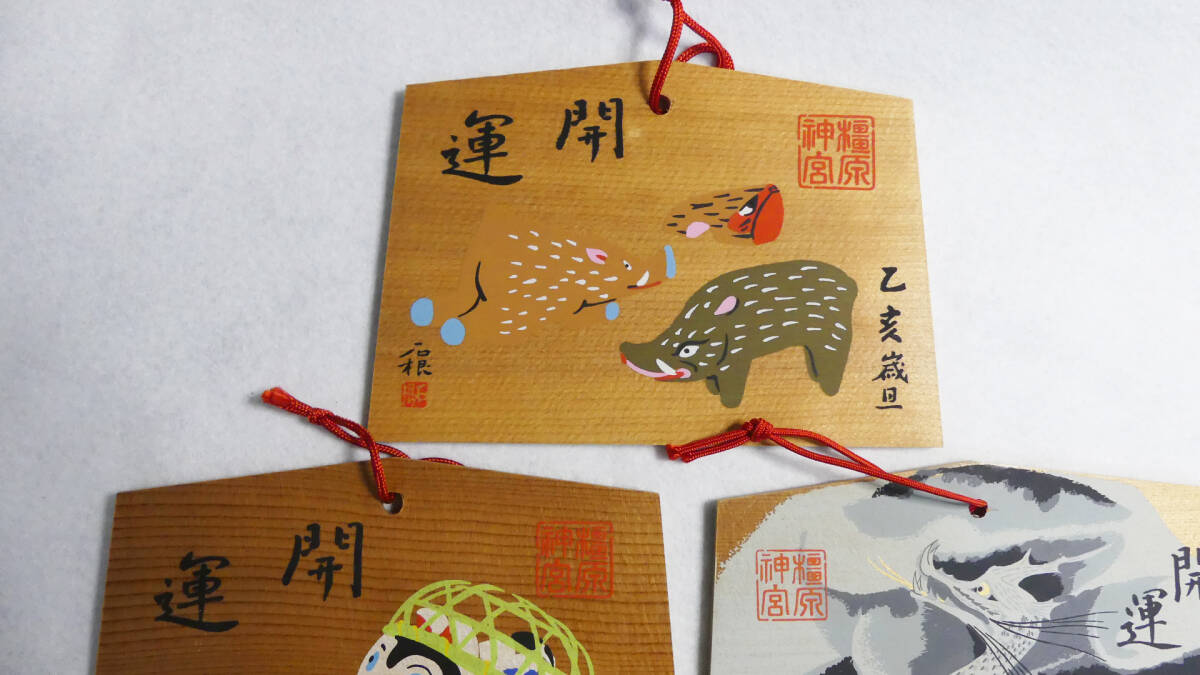 開運
橿原
神宮
乙亥歳旦
石根
開運
橿原
神宮
橿原
神宮
開運